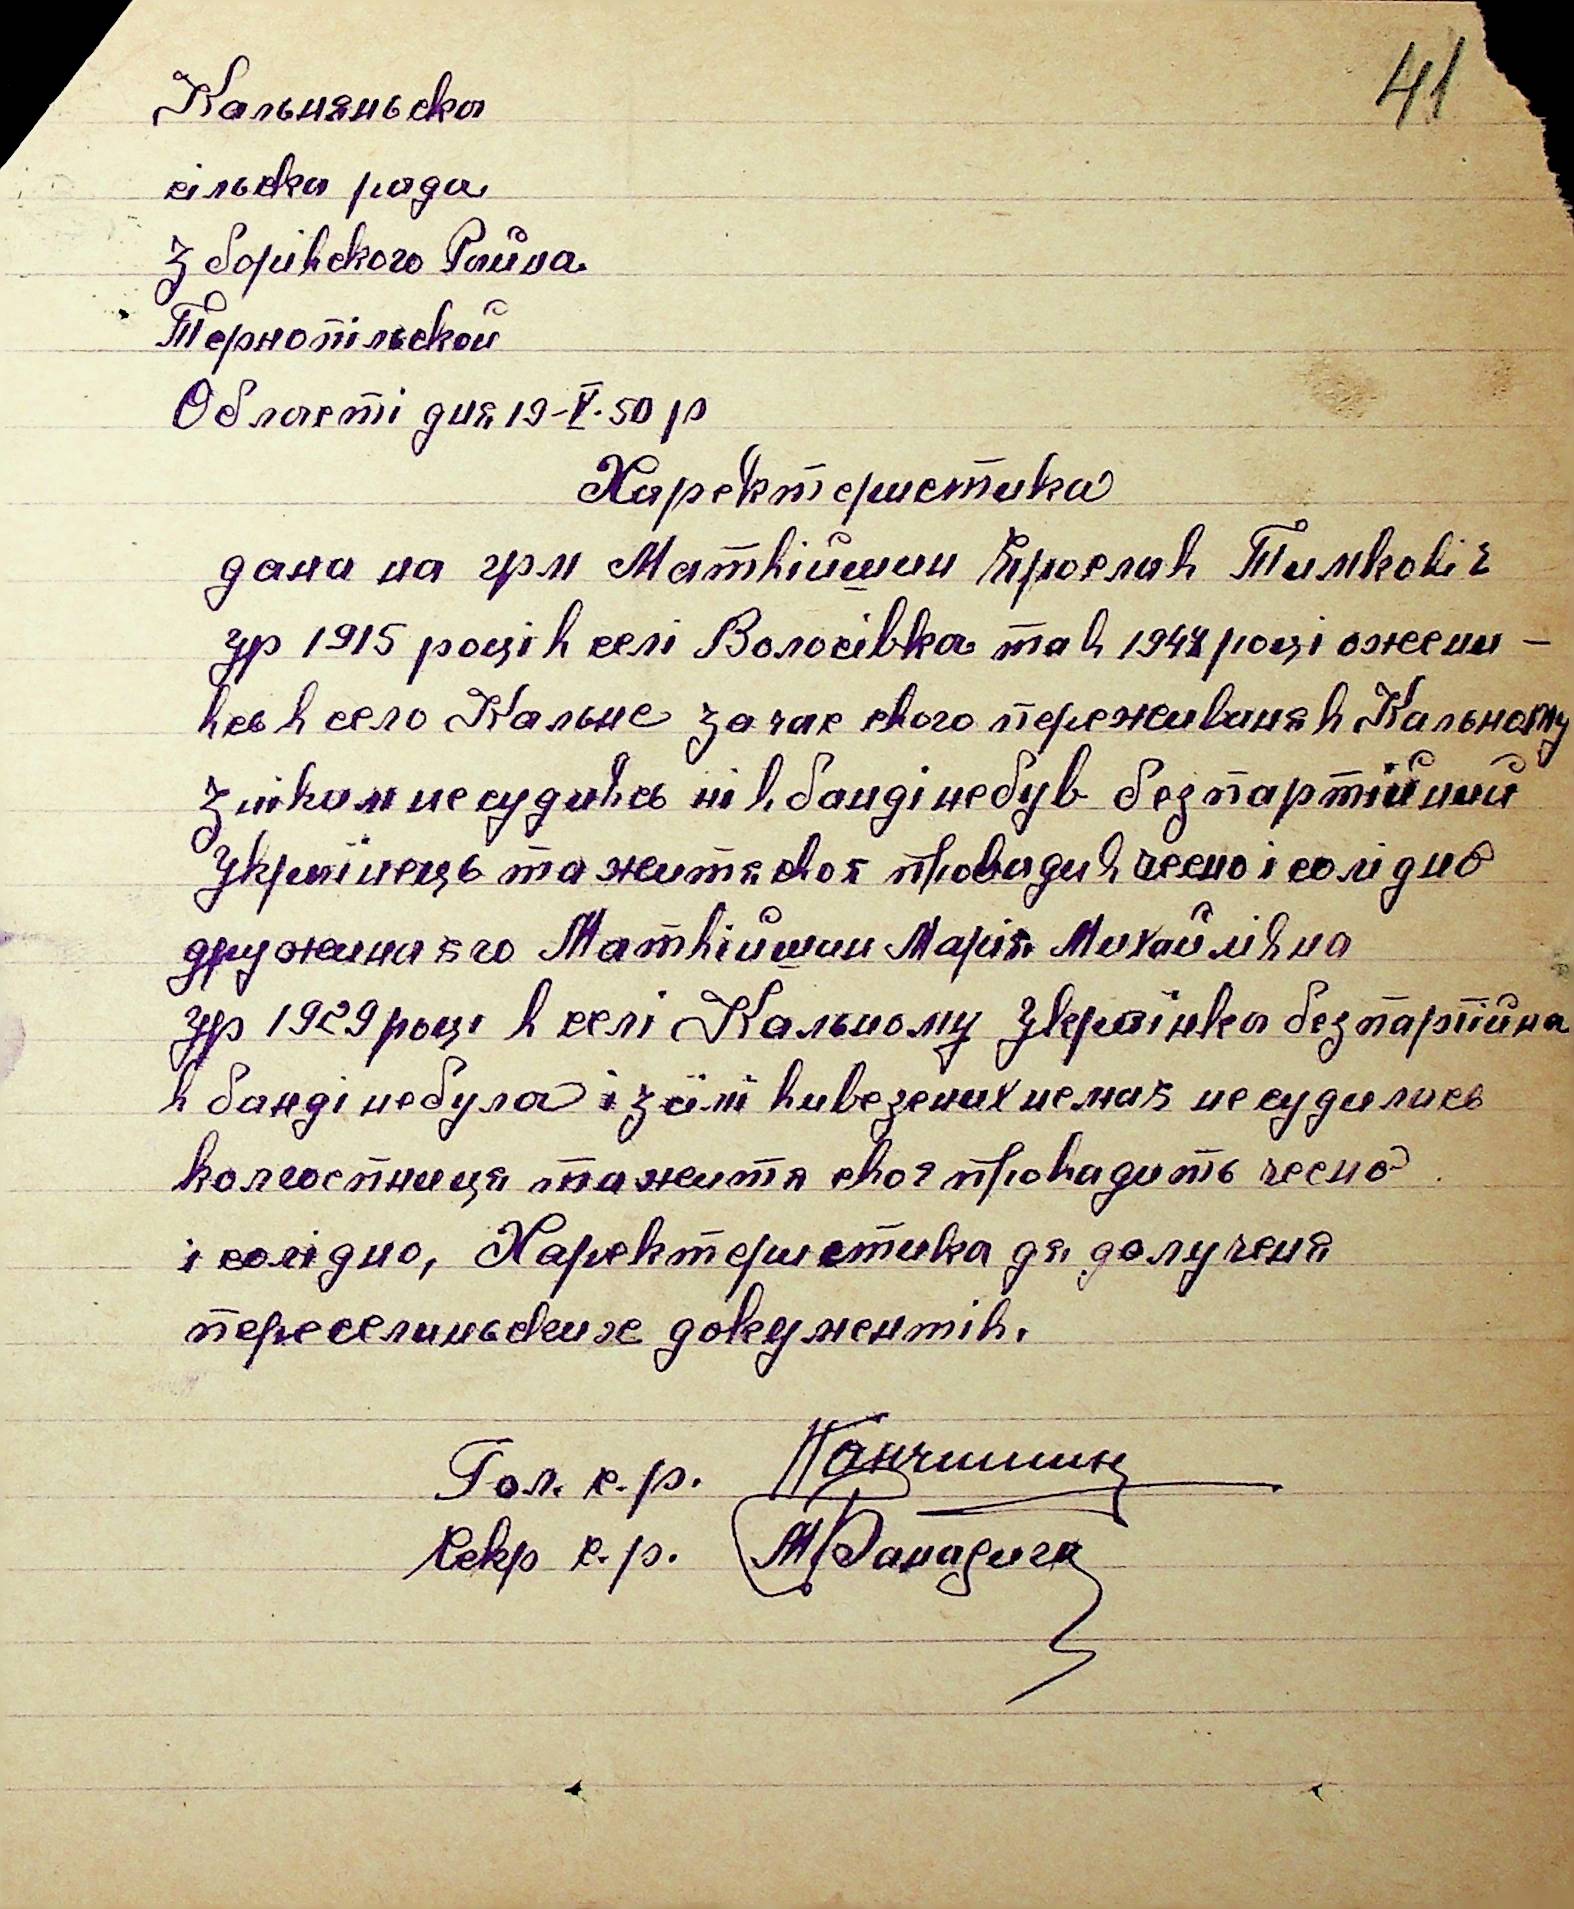 41
Кальняньска
сільска рада
Зборівского Района
Тернопільской
Області дня 19-V-50 р
Харектеристика
дана на грм Матвійшин Ярослав Тимковіч
ур 1915 році в селі Волосівка та в 1947 році ожени-
всь в село Кальне за час свого переживаня в Кальному
з ніким не судивсь ні в банді небув безпартійний
Українець та житя своя провадив чесно і солідно
дружина єго Матвійшин Марія Михайлівна
ур 1929 році в селі Кальному Українка безпартійна
в банді небула і зсімі вивезених немає не судилась
колгостниця та житя своя провадить чесно
і солідно, Харектеристика дя долученя
переселиньских документів.
Гол. с.р. Панчишин
Секр с.р. М